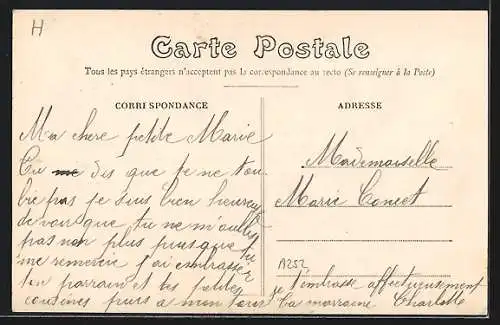 H
Carte Postale
Tous les pays étrangers n'acceptent pas la correspondance au recto (Se renseigner à la Poste)
CORRESPONDANCE
ADRESSE
Ma chere petite Marie
Tu me dis que je ne t'ou-
blie pas je suis bien heureuse
de voir que tu ne m'oublies
pas non plus puisque tu
me remercie j'ai embrassée
ton parrain et tes petites
cousines puis a mon tour
Mademoiselle
Marie
A252
je t'embrasse affectueusement
Ta marraine Charlotte